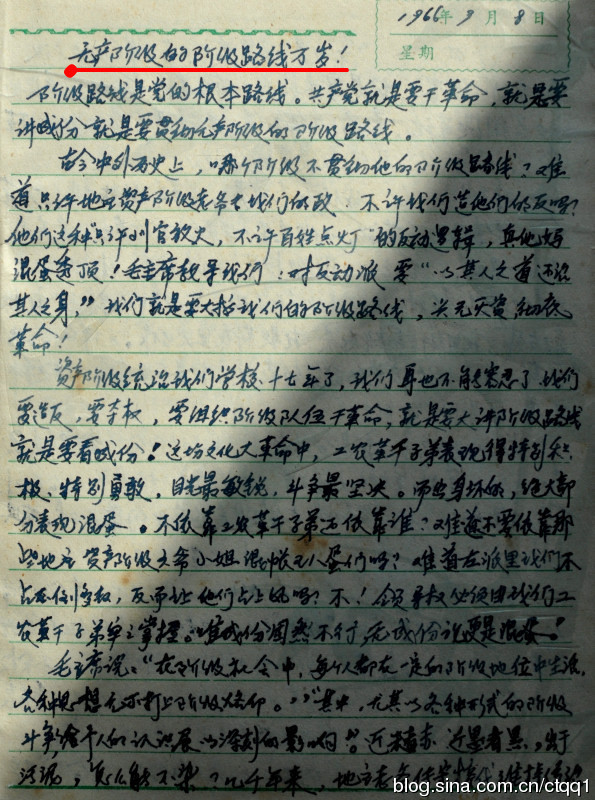 1966年9月8日
星期
无产阶级的阶级路线万岁!
阶级路线是党的根本路线。共产党就是要干革命,就是要
讲成份就是要贯彻无产阶级的阶级路线。
古今中外历史上,哪个阶级不贯彻他的阶级路线?难
道只许地主资产阶级专我们的政,不许我们造他们的反吗?
他们这种"只许州官放火,不许百姓点灯"的反动逻辑,真他妈
混蛋透顶!毛主席教导我们:对反动派要"以其人之道还治
其人之身,"我们就是要大搞我们的阶级路线,兴无灭资彻底
革命!
资产阶级统治我们学校十七年了,我们再也不能容忍了我们
要造反,要夺权,要组织阶级队伍干革命,就是要大讲阶级路线
就是要看成份!这场文化大革命中,工农革干子弟表现得特别积
极、特别勇敢,目光最敏锐,斗争最坚决。而出身坏的,绝大部
分表现混蛋。不依靠工农革干子弟还依靠谁?难道不要依靠那
些地主资产阶级少爷小姐混帐王八蛋们吗?难道左派里我们不
占压倒多数,反而让他们占上风吗?不!领导权必须由我们工
农革干子弟牢牢掌握。唯成份固然不行,无成份论更是混蛋!
毛主席说:"在阶级社会中,每个人都在一定的阶级地位中生活,
各种思想无不打上阶级烙印。""其中,尤其以各种形式的阶级
斗争给予人的认识发展以深刻的影响"。近朱者赤,近墨者黑,出于
污泥,岂能不染?几千年来,地主
blog.sina.com.cn/ctqq1